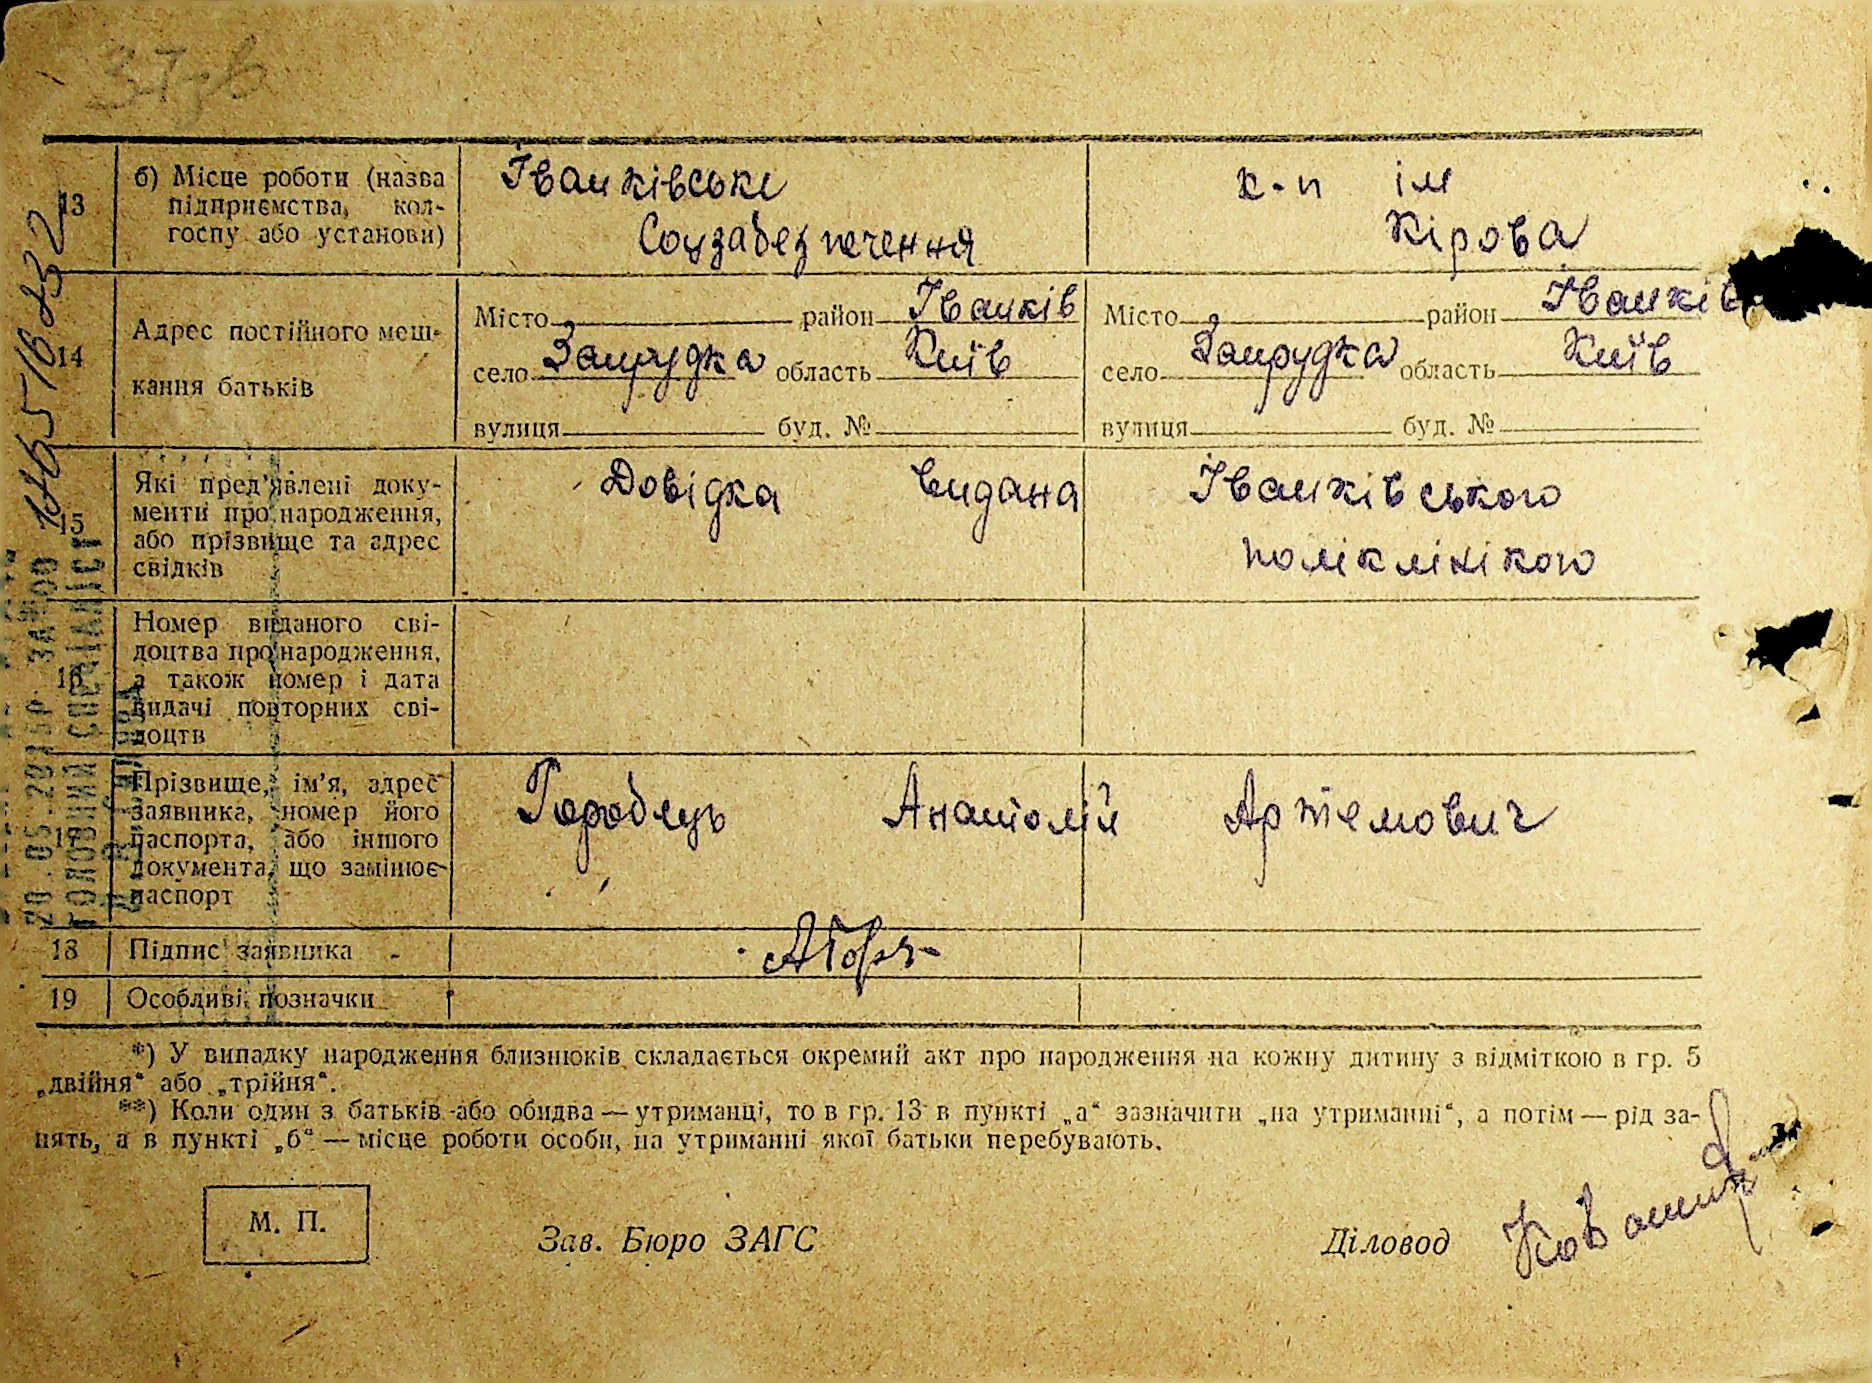 37зв
13 б) Місце роботи (назва підприємства, колгоспу або установи) Іванківське Соцзабезпечення к-п ім Кірова
14 Адрес постійного мешкання батьків
Місто район Іванків Місто район Іванків
село Запрудка область Київ село Запрудка область Київ
вулиця буд. № вулиця буд. №
15 Які пред'явлені документи про народження, або прізвище та адрес свідків Довідка видана Іванківського поліклінікою
16 Номер виданого свідоцтва про народження, а також номер і дата видачі повторних свідоцтв
17 Прізвище, ім'я, адрес заявника, номер його паспорта, або іншого документа, що замінює паспорт Горобець Анатолій Артемович
18 Підпис заявника АГор
19 Особливі позначки
*) У випадку народження близнюків складається окремий акт про народження на кожну дитину з відміткою в гр. 5
„двійня“ або „трійня“.
**) Коли один з батьків або обидва — утриманці, то в гр. 13 в пункті „а“ зазначити „на утриманні“, а потім — рід за-
нять, а в пункті „б“ — місце роботи особи, на утриманні якої батьки перебувають.
М. П. Зав. Бюро ЗАГС Діловод
ГОЛОВНИЙ СПЕЦІАЛІСТ